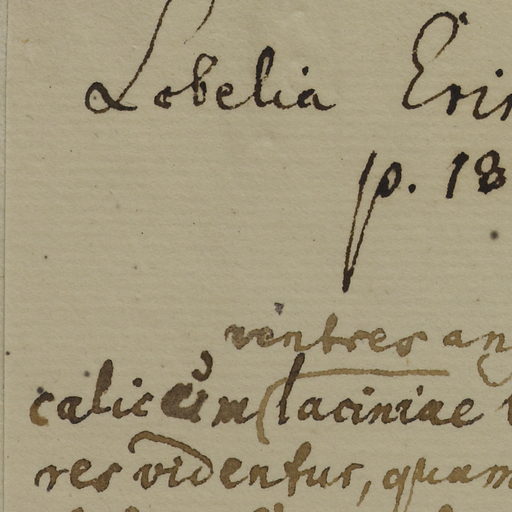 Lobelia Erin
p. 18
ventres ang
calicum (laciniae
res videntur, quam